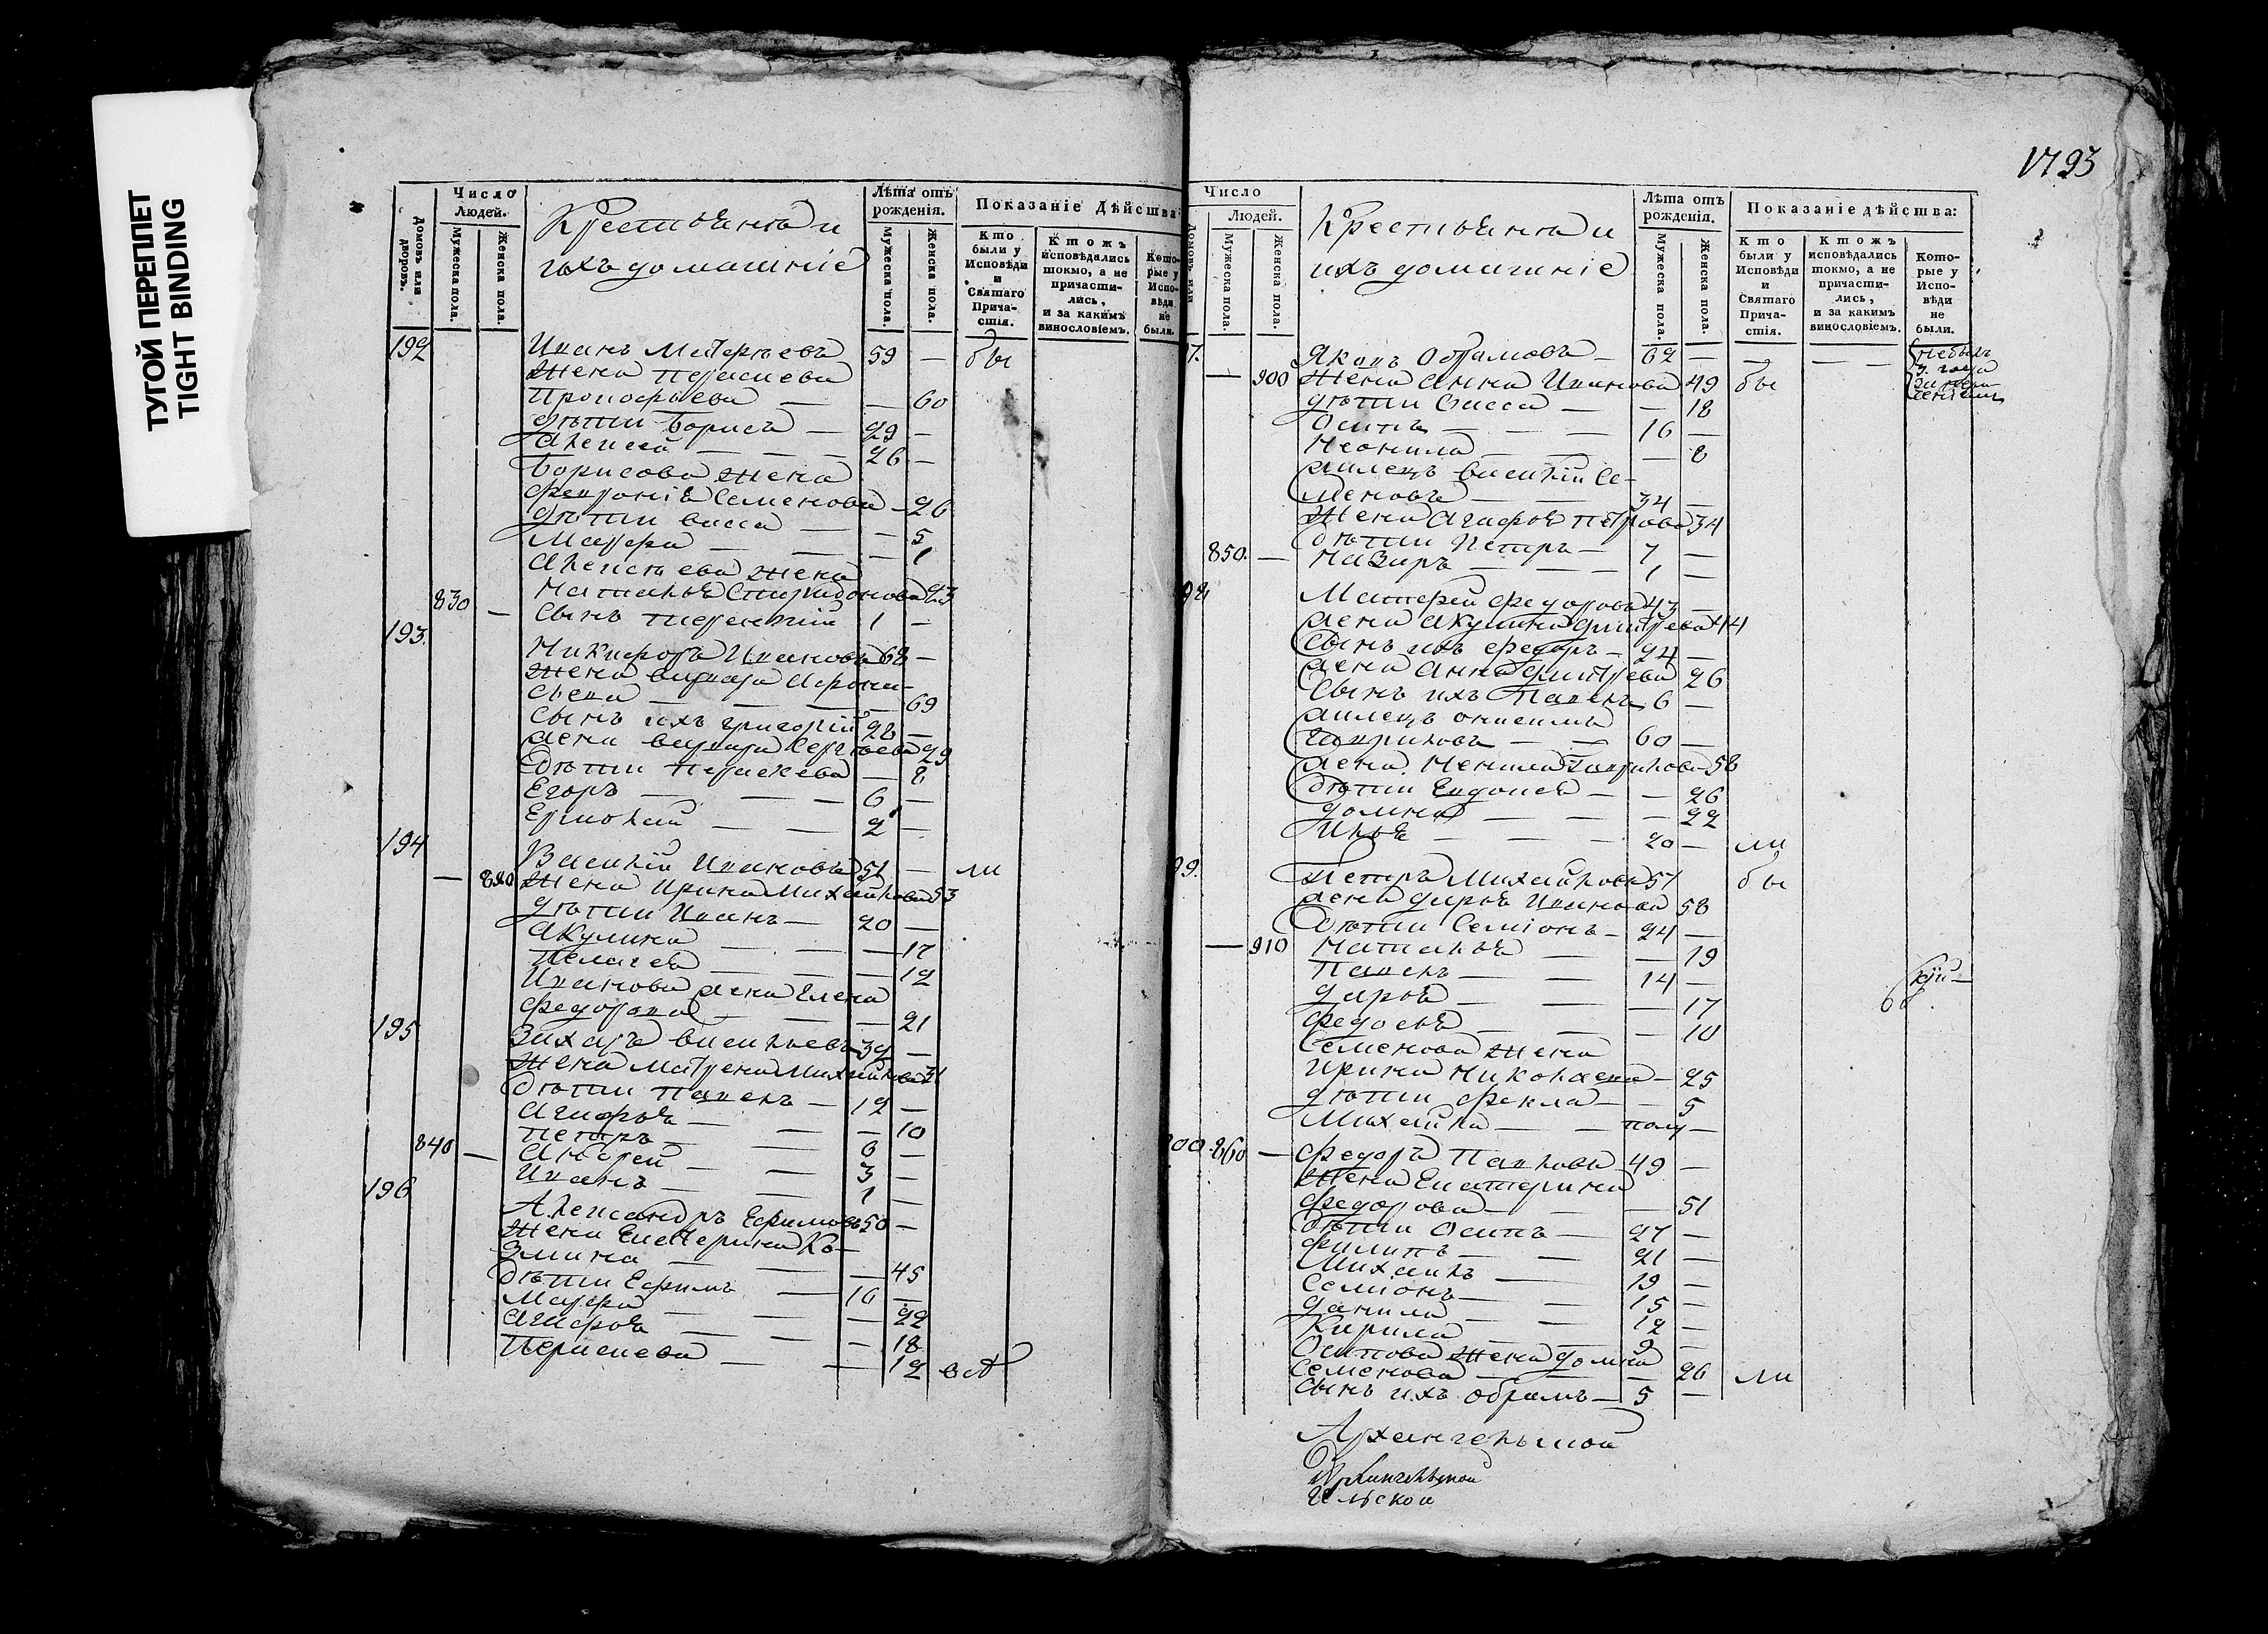 ТУГОЙ ПЕРЕПЛЕТ
TIGHT BINDING
Домовъ или дворовъ.
Число Людей.
Мужеска пола.
Женска пола.
Крестьяня и
ихъ домашніе
Лѣта отъ рожденія.
Мужеска пола.
Женска пола.
Показаніе Дѣйства
Кто были у Исповѣди и Святаго Прича-стія.
Ктожъ исповѣдались токмо, а не причасти-лись, и за какимъ винословіемъ.
Кото-рые у Испо-вѣди не были.
192 Иванъ Матфеевъ 59 — бы
Жена Парасковѣя
Прокофьева — — 60
Дѣти Борисъ — 29 —
Алексѣй — — — 26 —
Борисова жена
Феврониѣ Семенова — 26
Дѣти Васса — — 5
Мавра — — — 1
Алексѣева жена
830 — Наталья Спиридонова 23
Сынъ Терентій 1 —
193. Никифоръ Ивановъ 68 —
Жена Варвара Афона-
сьева — — — 69
Сынъ ихъ Григорій 28 —
жена Варвара Сергѣева 29
Дѣти Параскева — 8
Егоръ — — — 6 —
Ермолай — — 2 —
194 Василій Ивановъ 51 — ли
— 890 Жена Ирина Михайлова 53
Дѣти Иванъ — 20 —
Акулина — — — 17
Пелагея — — — 12
Иванова жена Елена
Федорова — — — 21
195 Захаръ Васильевъ 32 —
Жена Матрена Михайлова 31
Дѣти Павелъ — 12 —
Агафья — — — 10
Петръ — — 6 —
840 — Андрей — — 3 —
Иванъ — — 1 —
196 Александръ Ефимовъ 50 —
Жена Екатерина Ко-
змина — — — 45
Дѣти Ефимъ — 16 —
Мавра — — — 22
Агафья — — — 18
Параскева — — 12 всѣ
1793
Число Людей.
Домовъ или
Мужеска пола.
Женска пола.
Крестьяня и
ихъ домашніе
Лѣта отъ рожденія.
Мужеска пола.
Женска пола.
Показаніе дѣйства:
Кто были у Исповѣди и Святаго Прича-стія.
Ктожъ исповѣдались токмо, а не причасти-лись, и за какимъ винословіемъ.
Кото-рые у Испо-вѣди не были.
7. Яковъ Обрамовъ — 62 — — — — небылъ
— 900 Жена Анна Иванова 49 бы
Дѣти Васса — — 18
Осипъ — — — 16 —
Неонила — — — 8
жилецъ Василій Се-
меновъ — — 34 —
Жена Агафья Петрова 34
Дѣти Петръ — 7 —
850. — Назаръ — — — 1 —
98 Матфей Федоровъ 43 —
жена Акулина Дмитрева 44
Сынъ ихъ Федоръ — 24 —
жена Анна Дмитрева 26
Сынъ ихъ Павелъ 6 —
жилецъ Онисимъ
Гавриловъ — — 60 —
жена Ненила Гаврилова 58
Дѣти Евдокея — — 26
Домна — — — 22
Илья — — — 20 — ли
99. Петръ Михайловъ 57 бы
жена Дарья Иванова 58
Дѣти Семіонъ — 24 —
— 910 Наталья — — 19
Павелъ — — 14 —
Дарья — — — 17
Федосья — — — 10
Семенова жена
Ирина Николаева — 25
Дѣти Фекла — — 5
Михайла — — полу —
00 860 — Федоръ Павловъ 49 —
Жена Екатерина
Федорова — — 51
Дѣти Осипъ — 27 —
Филипъ — — 21 —
Михаилъ — 19 —
Семіонъ — — 15 —
Данила — — 12 —
Кирила — — 9 —
Осипова жена Домна
Семенова — — — 26 ли
Сынъ ихъ Обрамъ — 5 —
Архангельской
Архангельской